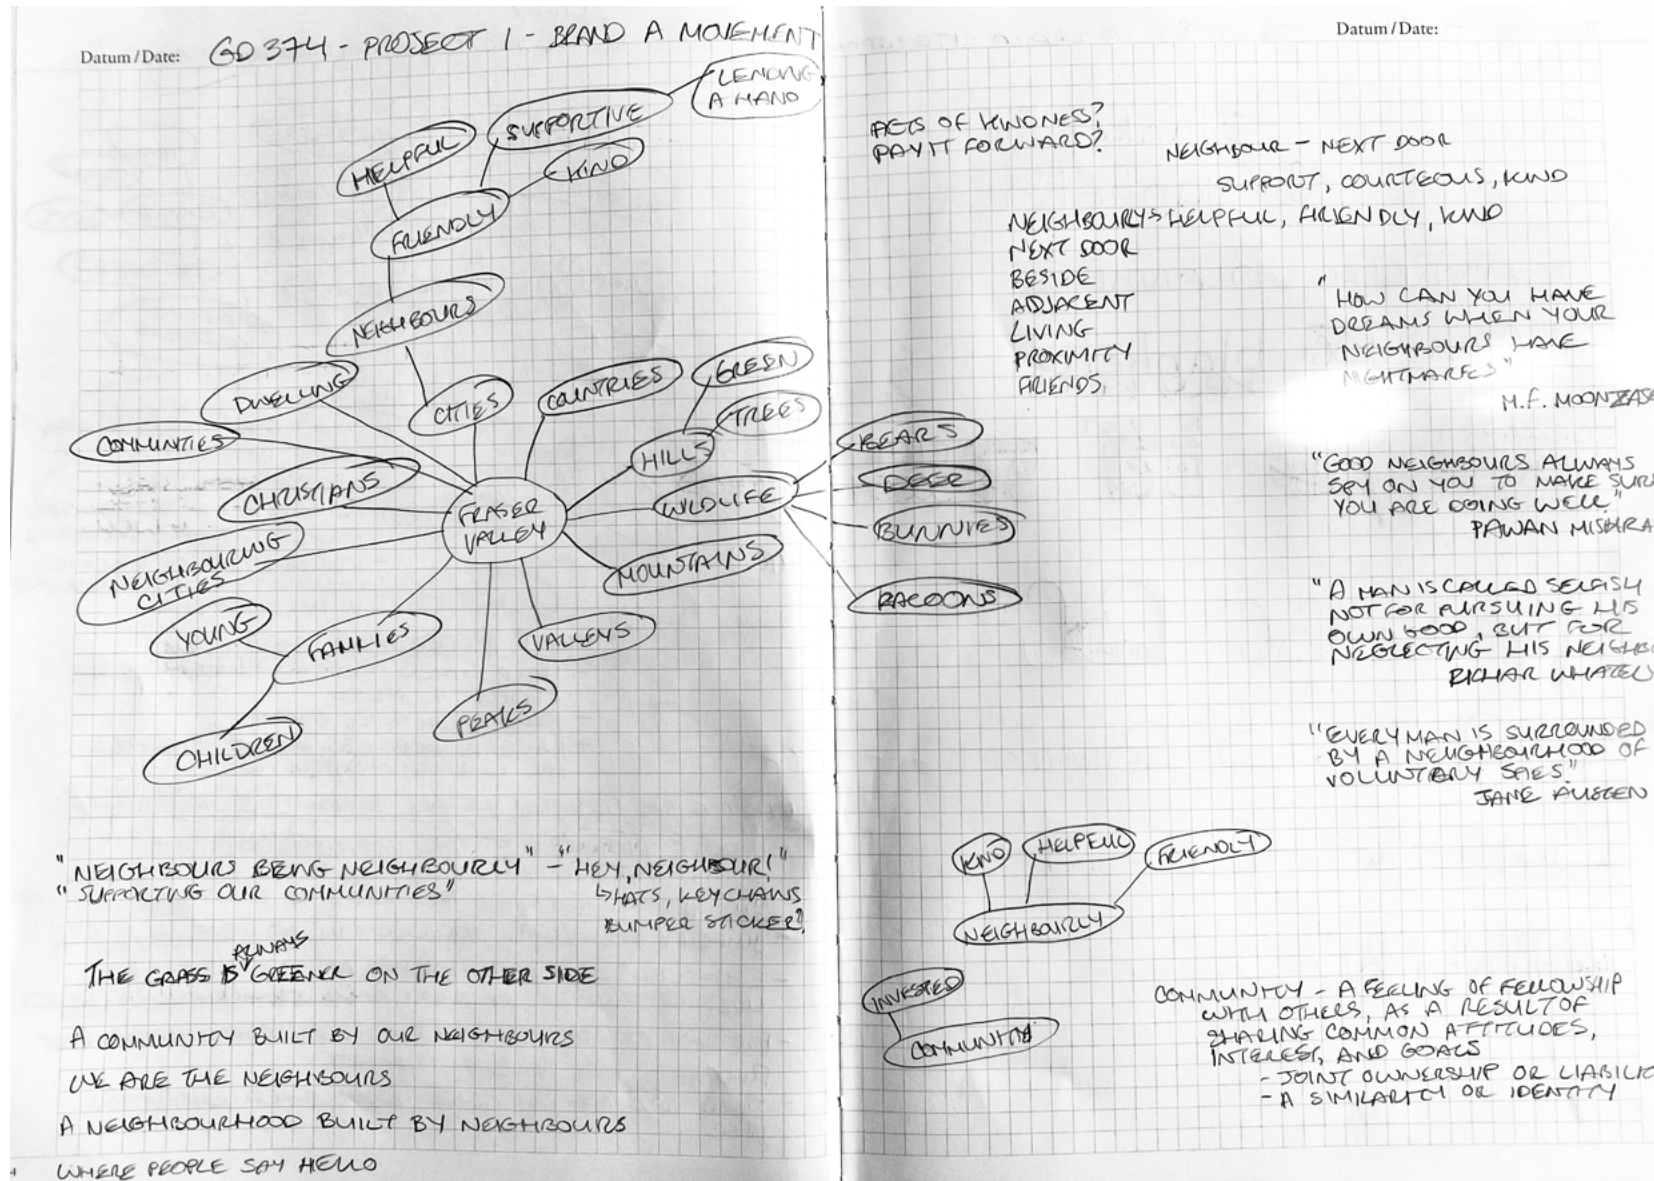 Datum / Date: GD 374 - PROJECT 1 - BRAND A MOVEMENT
LENDING
A HAND
SUPPORTIVE
HELPFUL
KIND
FRIENDLY
NEIGHBOURS
DWELLING
CITIES
COUNTRIES
GREEN
TREES
COMMUNITIES
HILLS
CHRISTIANS
WILDLIFE
FRASER
VALLEY
NEIGHBOURING
CITIES
MOUNTAINS
YOUNG
FAMILIES
VALLEYS
PEAKS
CHILDREN
"NEIGHBOURS BEING NEIGHBOURLY" - "HEY, NEIGHBOUR!"
"SUPPORTING OUR COMMUNITIES"
HATS, KEYCHAINS
BUMPER STICKER?
ALWAYS
THE GRASS IS GREENER ON THE OTHER SIDE
A COMMUNITY BUILT BY OUR NEIGHBOURS
WE ARE THE NEIGHBOURS
A NEIGHBOURHOOD BUILT BY NEIGHBOURS
WHERE PEOPLE SAY HELLO
Datum / Date:
ACTS OF KINDNESS?
PAY IT FORWARD?
NEIGHBOUR - NEXT DOOR
SUPPORT, COURTEOUS, KIND
NEIGHBOURLY > HELPFUL, FRIENDLY, KIND
NEXT DOOR
BESIDE
ADJACENT
LIVING
PROXIMITY
FRIENDS
"HOW CAN YOU HAVE
DREAMS WHEN YOUR
NEIGHBOURS HAVE
NIGHTMARES"
M.F. MOONZAJE
BEARS
DEER
BUNNIES
RACOONS
"GOOD NEIGHBOURS ALWAYS
SPY ON YOU TO MAKE SUR
YOU ARE DOING WELL"
PAWAN MISHRA
"A MAN IS CALLED SELFISH
NOT FOR PURSUING HIS
OWN GOOD, BUT FOR
NEGLECTING HIS NEIGHBO
RICHAR WHATELY
"EVERY MAN IS SURROUNDED
BY A NEIGHBOURHOOD OF
VOLUNTARY SPIES."
JANE AUSTEN
KIND
HELPFUL
FRIENDLY
NEIGHBOURLY
INVESTED
COMMUNITY
COMMUNITY - A FEELING OF FELLOWSHIP
WITH OTHERS, AS A RESULT OF
SHARING COMMON ATTITUDES,
INTEREST, AND GOALS
- JOINT OWNERSHIP OR LIABILIT
- A SIMILARITY OR IDENTITY